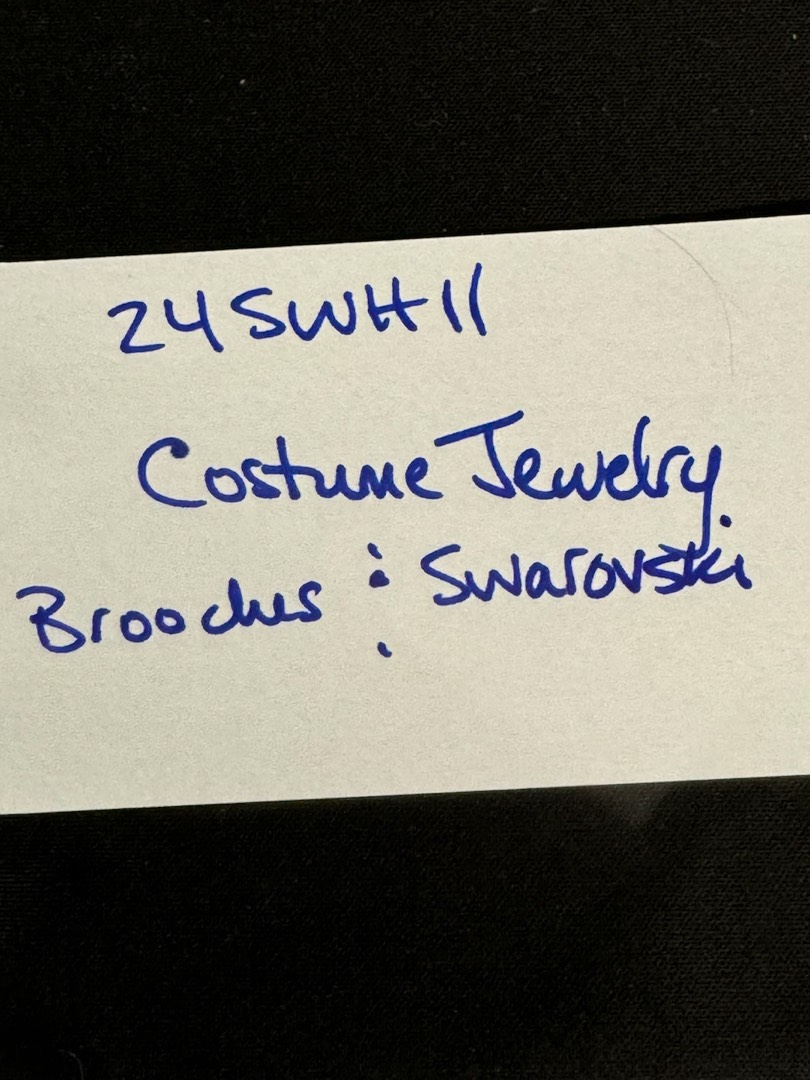 24SWH11
Costume Jewelry
Brooches : Swarovski